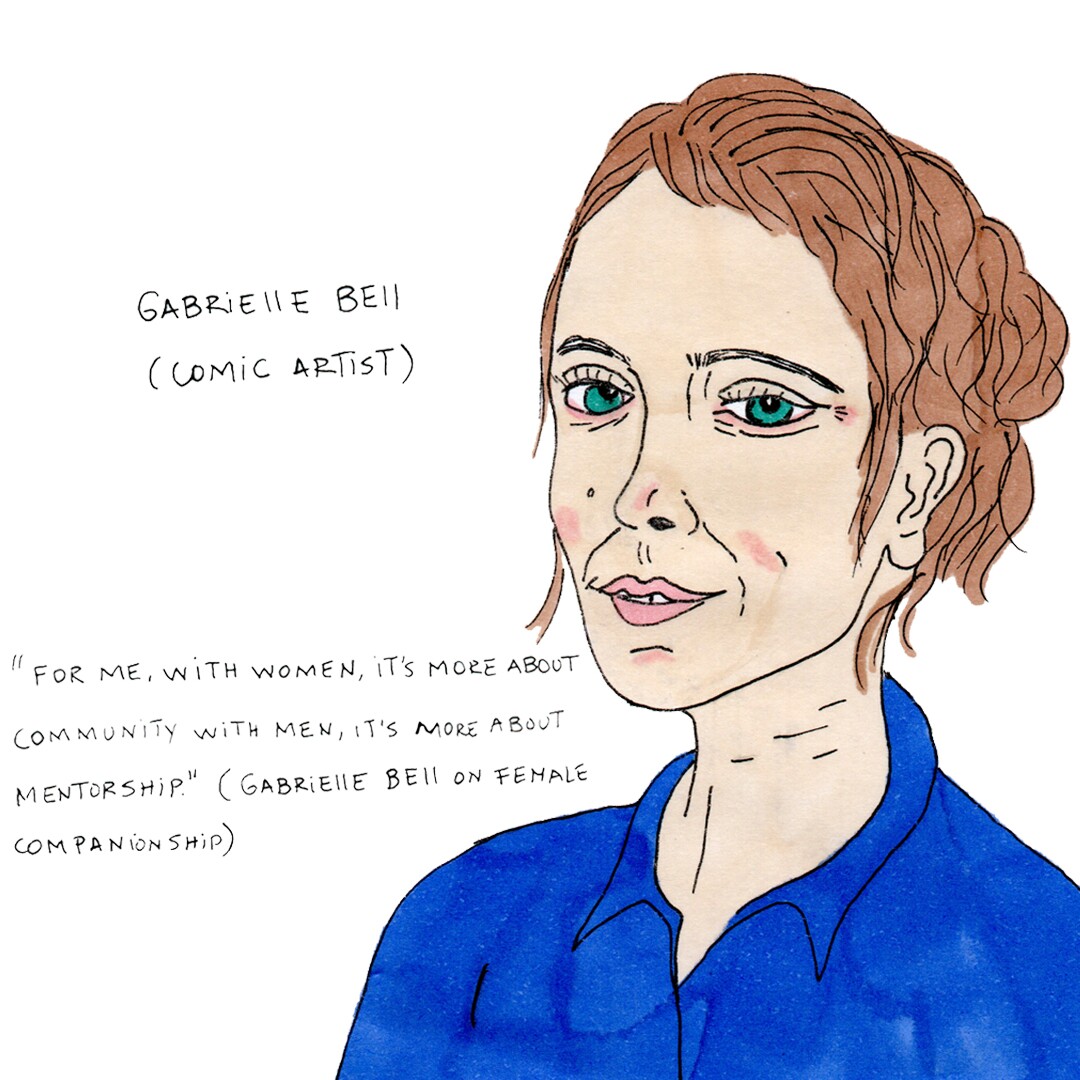 GABRIELLE BELL
(COMIC ARTIST)
"FOR ME, WITH WOMEN, IT'S MORE ABOUT
COMMUNITY WITH MEN, IT'S MORE ABOUT
MENTORSHIP." (GABRIELLE BELL ON FEMALE
COMPANIONSHIP)